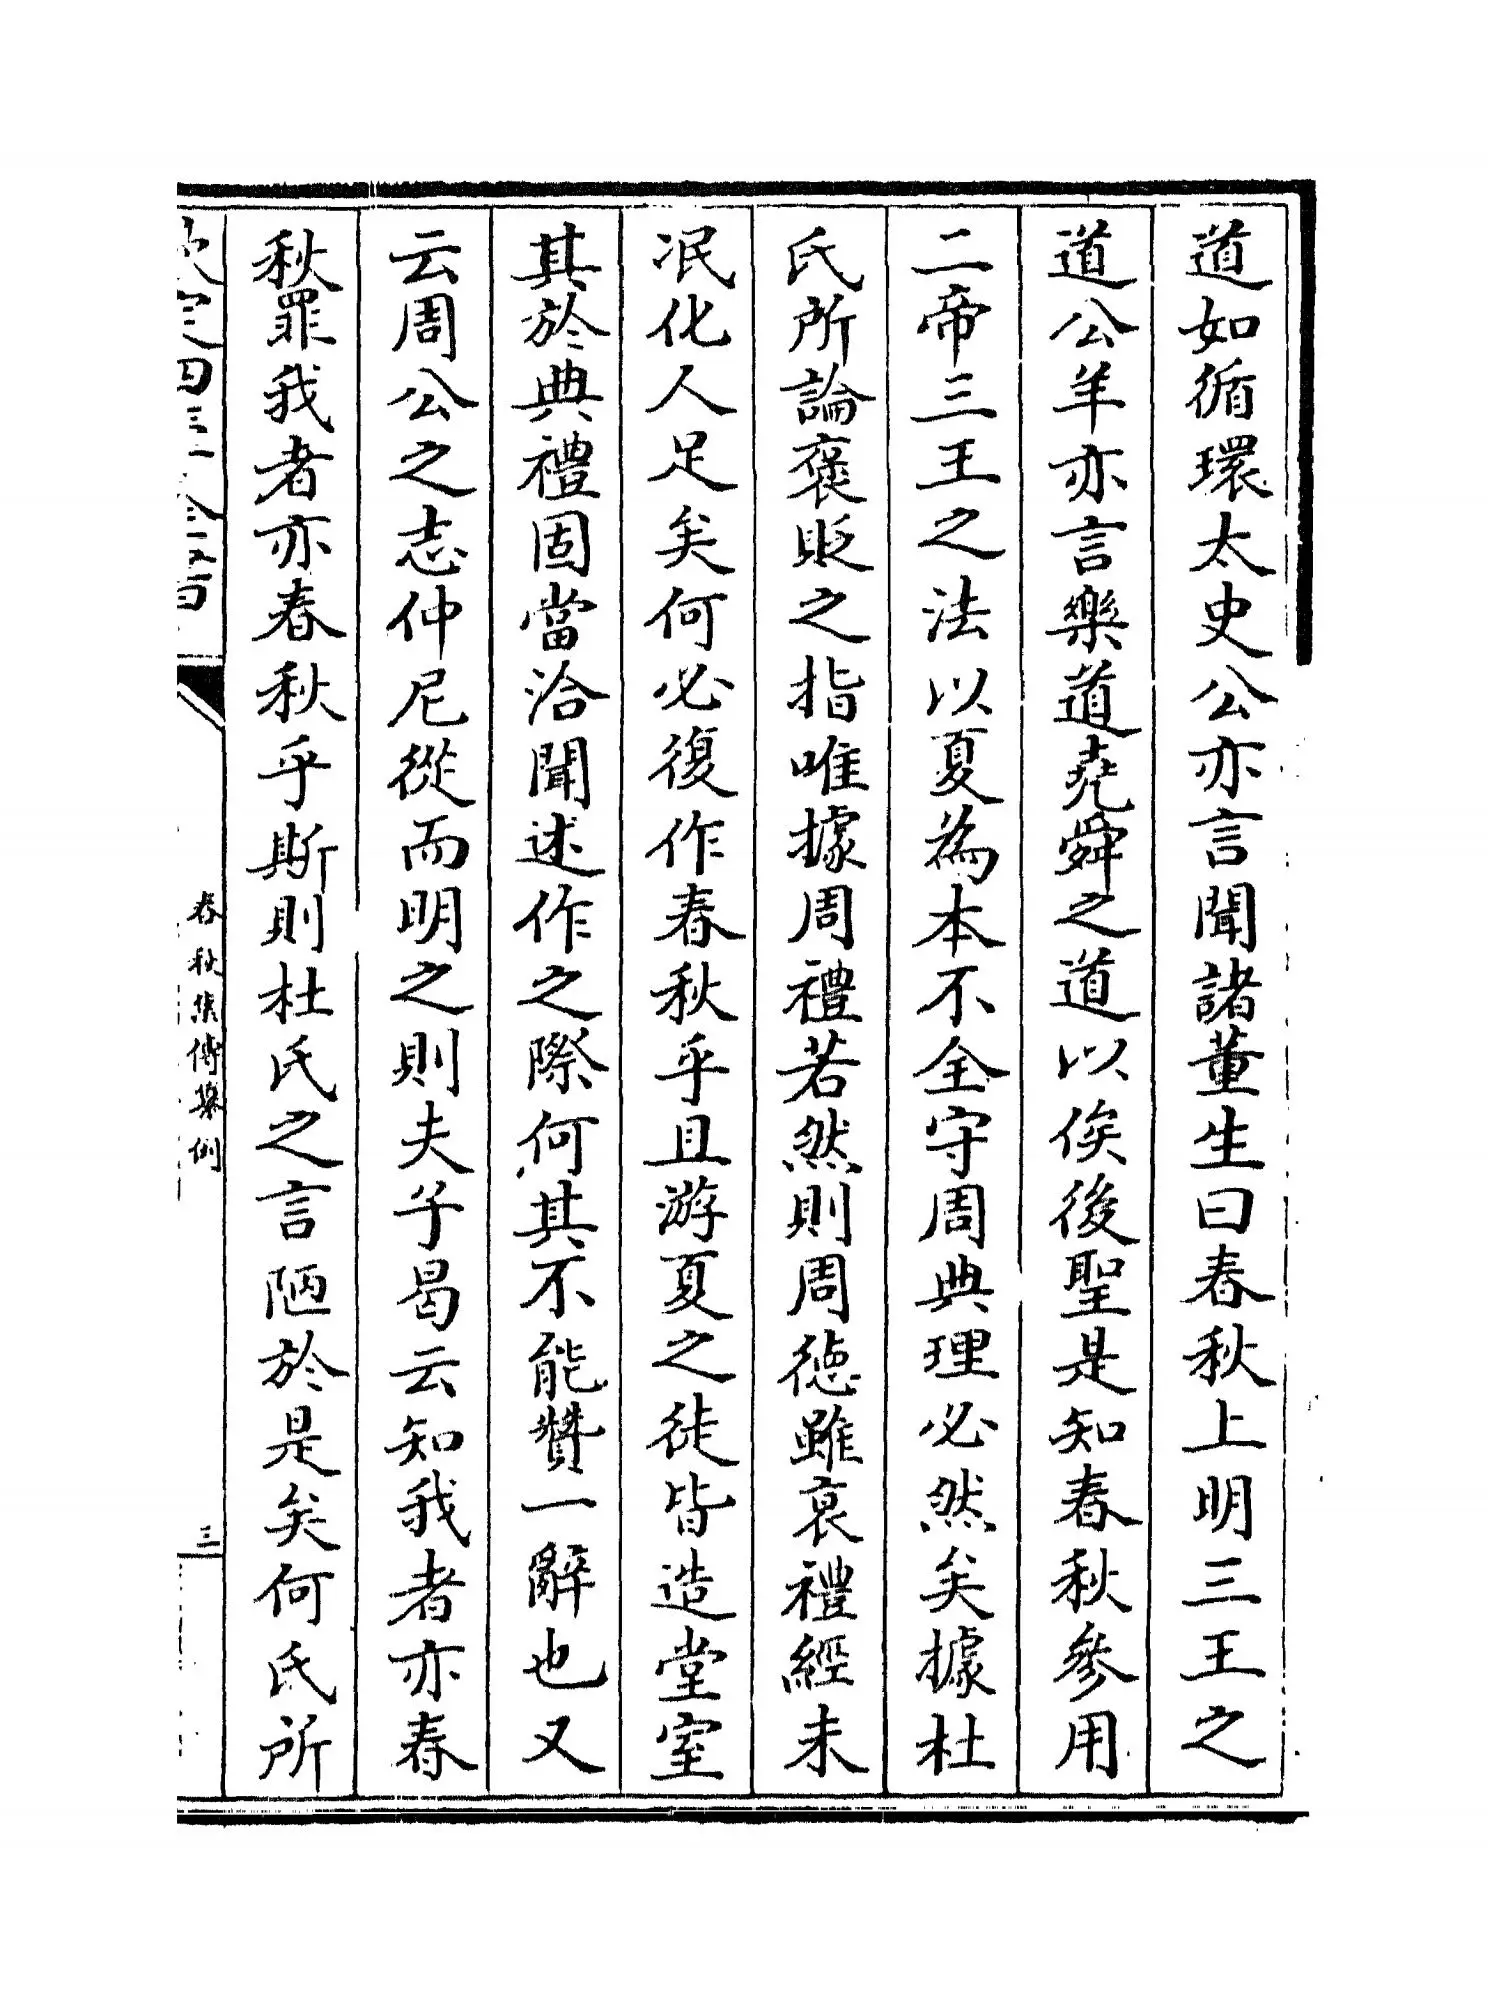 道如循環太史公亦言聞諸董生曰春秋上明三王之
道公羊亦言樂道堯舜之道以俟後聖是知春秋參用
二帝三王之法以夏為本不全守周典理必然矣據杜
氏所論褒貶之指唯據周禮若然則周徳雖衰禮經未
泯化人足矣何必復作春秋乎且游夏之徒皆造堂室
其於典禮固當洽聞述作之際何其不能贊一辭也又
云周公之志仲尼從而明之則夫子曷云知我者亦春
秋罪我者亦春秋乎斯則杜氏之言陋於是矣何氏所
欽定四庫全書
春秋集傳纂例
三